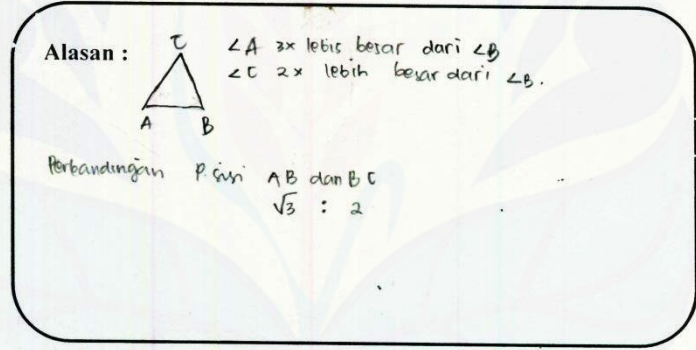 Alasan :
C
∠A 3x lebih besar dari ∠B
∠C 2x lebih besar dari ∠B.
A B
Perbandingan P. sisi AB dan BC
√3 : 2